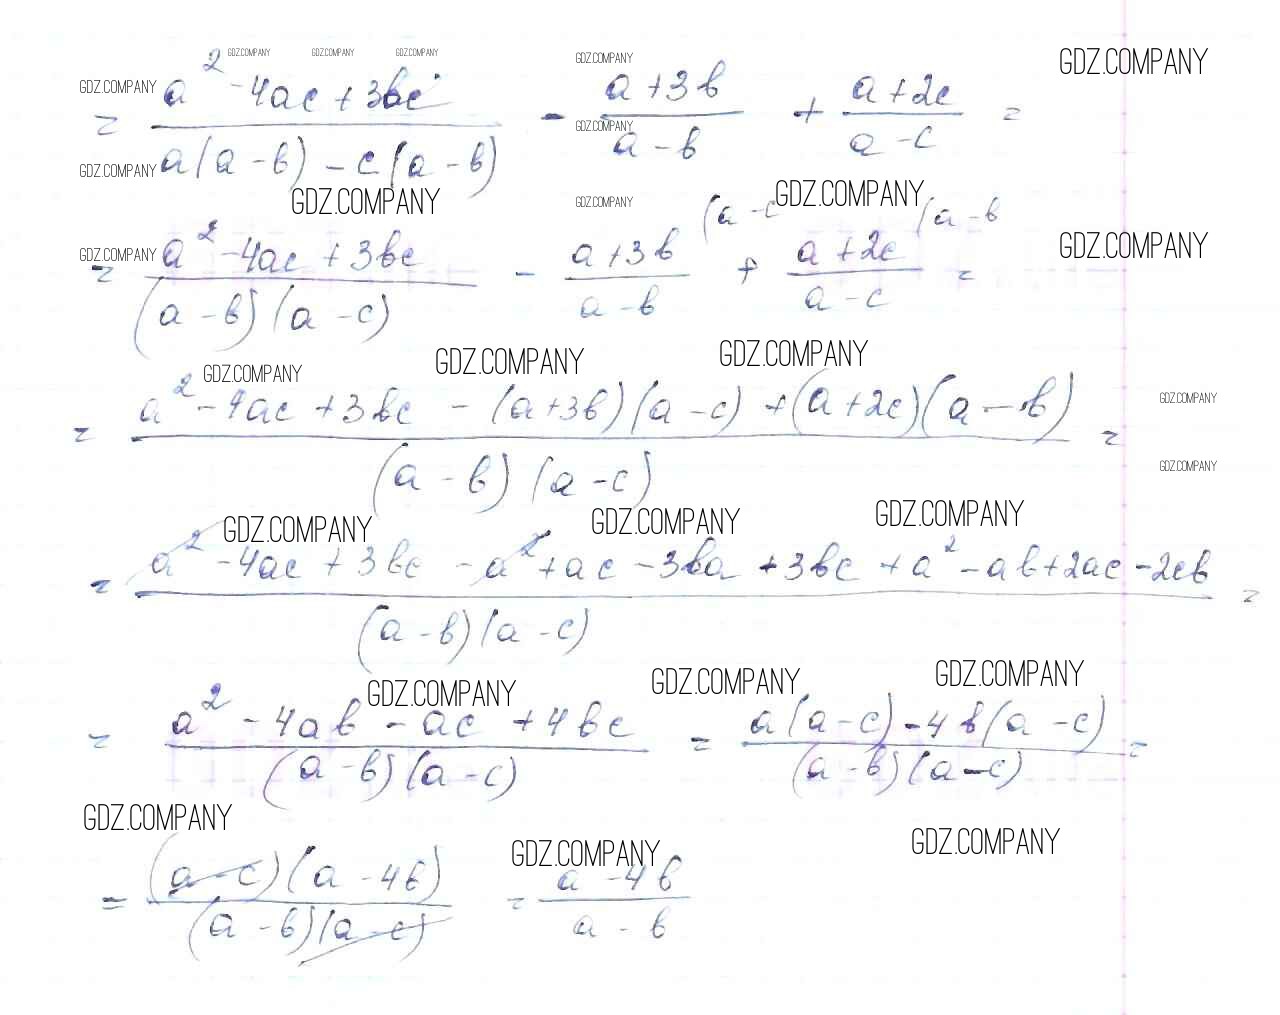 GDZ.COMPANY GDZ.COMPANY GDZ.COMPANY GDZ.COMPANY GDZ.COMPANY GDZ.COMPANY
= (a² - 4ac + 3bc) / (a(a - b) - c(a - b)) - (a + 3b) / (a - b) + (a + 2c) / (a - c) =
GDZ.COMPANY GDZ.COMPANY
GDZ.COMPANY GDZ.COMPANY GDZ.COMPANY
(a - c (a - b
GDZ.COMPANY GDZ.COMPANY
= (a² - 4ac + 3bc) / ((a - b)(a - c)) - (a + 3b) / (a - b) + (a + 2c) / (a - c) =
GDZ.COMPANY GDZ.COMPANY GDZ.COMPANY
= (a² - 4ac + 3bc - (a + 3b)(a - c) + (a + 2c)(a - b)) / ((a - b)(a - c)) =
GDZ.COMPANY
GDZ.COMPANY
GDZ.COMPANY GDZ.COMPANY GDZ.COMPANY
= (a² - 4ac + 3bc - a² + ac - 3ba + 3bc + a² - ab + 2ac - 2cb) / ((a - b)(a - c)) =
GDZ.COMPANY GDZ.COMPANY GDZ.COMPANY
= (a² - 4ab - ac + 4bc) / ((a - b)(a - c)) = (a(a - c) - 4b(a - c)) / ((a - b)(a - c)) =
GDZ.COMPANY GDZ.COMPANY GDZ.COMPANY
= ((a - c)(a - 4b)) / ((a - b)(a - c)) = (a - 4b) / (a - b)